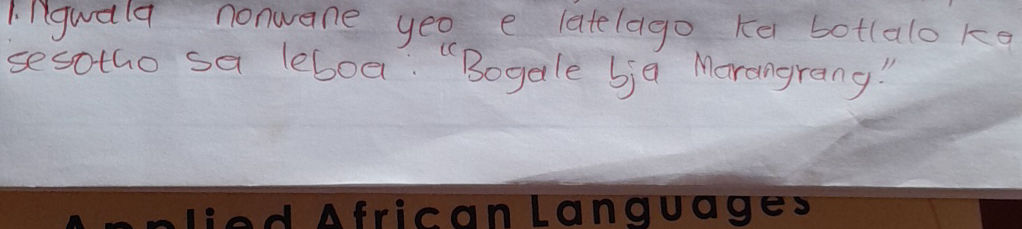 1. Ngwala nonwane yeo e latelago ka botlalo ka
sesotho sa leboa : "Bogale bja Marangrang!"
Applied African Languages